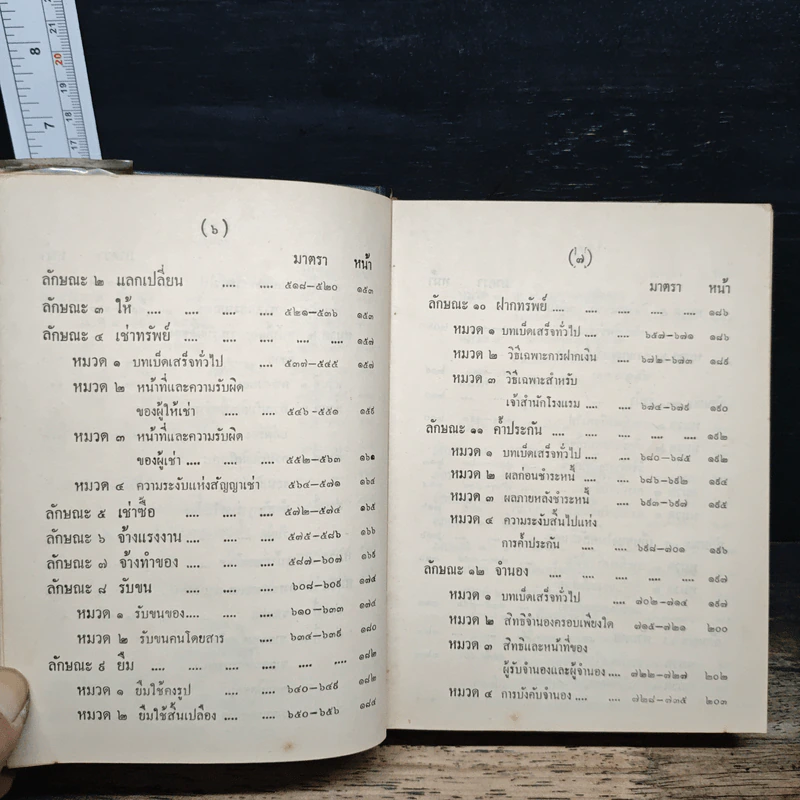 (๖)
มาตรา หน้า
ลักษณะ ๒ แลกเปลี่ยน .... .... ๕๑๘–๕๒๐ ๑๕๓
ลักษณะ ๓ ให้ .... .... .... .... ๕๒๑–๕๓๖ ๑๕๓
ลักษณะ ๔ เช่าทรัพย์ .... .... .... .... .... ๑๕๗
หมวด ๑ บทเบ็ดเสร็จทั่วไป .... .... ๕๓๗–๕๔๕ ๑๕๗
หมวด ๒ หน้าที่และความรับผิด
ของผู้ให้เช่า .... .... ๕๔๖-๕๕๑ ๑๕๙
หมวด ๓ หน้าที่และความรับผิด
ของผู้เช่า .... .... .... ๕๕๒–๕๖๓ ๑๖๑
หมวด ๔ ความระงับแห่งสัญญาเช่า ๕๖๔–๕๗๑ ๑๖๔
ลักษณะ ๕ เช่าซื้อ .... .... .... ๕๗๒–๕๗๔ ๑๖๕
ลักษณะ ๖ จ้างแรงงาน .... .... ๕๗๕–๕๘๖ ๑๖๖
ลักษณะ ๗ จ้างทำของ .... .... ๕๘๗–๖๐๗ ๑๖๙
ลักษณะ ๘ รับขน .... .... .... ๖๐๘–๖๐๙ ๑๗๔
หมวด ๑ รับขนของ.... .... .... ๖๑๐–๖๓๓ ๑๗๔
หมวด ๒ รับขนคนโดยสาร .... ๖๓๔–๖๓๙ ๑๘๐
ลักษณะ ๙ ยืม .... .... .... .... .... .... ๑๘๒
หมวด ๑ ยืมใช้คงรูป .... .... ๖๔๐–๖๔๙ ๑๘๒
หมวด ๒ ยืมใช้สิ้นเปลือง .... .... ๖๕๐–๖๕๖ ๑๘๔
(๗)
มาตรา หน้า
ลักษณะ ๑๐ ฝากทรัพย์ .... .... .... .... .... ๑๘๖
หมวด ๑ บทเบ็ดเสร็จทั่วไป .... .... ๖๕๗–๖๗๑ ๑๘๖
หมวด ๒ วิธีเฉพาะการฝากเงิน .... ๖๗๒–๖๗๓ ๑๘๙
หมวด ๓ วิธีเฉพาะสำหรับ
เจ้าสำนักโรงแรม .... ๖๗๔–๖๗๙ ๑๙๐
ลักษณะ ๑๑ ค้ำประกัน .... .... .... .... .... ๑๙๒
หมวด ๑ บทเบ็ดเสร็จทั่วไป.... .... ๖๘๐–๖๘๕ ๑๙๒
หมวด ๒ ผลก่อนชำระหนี้ .... ๖๘๖–๖๙๒ ๑๙๔
หมวด ๓ ผลภายหลังชำระหนี้ .... ๖๙๓–๖๙๗ ๑๙๕
หมวด ๔ ความระงับสิ้นไปแห่ง
การค้ำประกัน .... .... ๖๙๘–๗๐๑ ๑๙๖
ลักษณะ ๑๒ จำนอง .... .... .... .... .... ๑๙๗
หมวด ๑ บทเบ็ดเสร็จทั่วไป .... ๗๐๒–๗๑๔ ๑๙๗
หมวด ๒ สิทธิจำนองครอบเพียงใด ๗๑๕–๗๒๑ ๒๐๐
หมวด ๓ สิทธิและหน้าที่ของ
ผู้รับจำนองและผู้จำนอง.... ๗๒๒–๗๒๗ ๒๐๒
หมวด ๔ การบังคับจำนอง .... .... ๗๒๘–๗๓๕ ๒๐๓
8
7
21
20
19
18
17